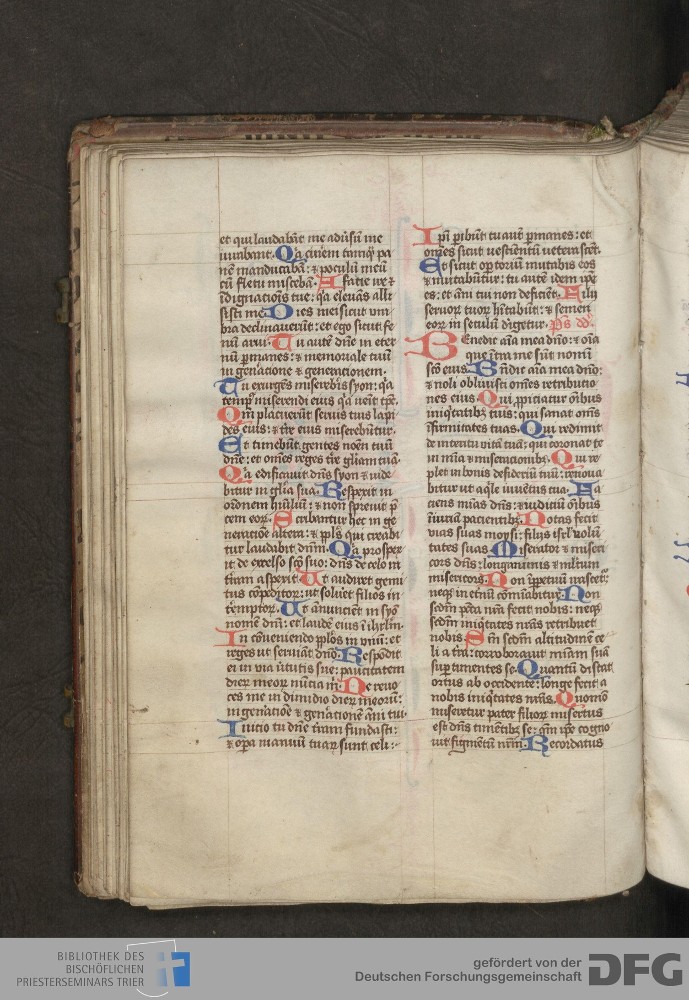 et qui laudabāt me adūsū me
iurabant. Qa cinerē tanq̄ pa
nē manducabā: et poculū meū
cū fletu miscebā. A facie ire et
īdignatiōis tue: qa eleuās alli
sisti me. Dies mei sicut vm
bra declinauerūt: et ego sicut fe
nū arui. Tu autē dn̄e in eter
nū ꝑmanes: et memoriale tuū
in genatione et generationem.
Tu exurgēs misereb̄ris syon: qa
tempꝰ miserendi eius qa venit tp̄s.
Qm̄ placuerūt seruis tuis lapi
des eius: et tre eius miserebūtur.
Et timebūt gentes noēn tuū
dn̄e: et om̄es reges tre gliam tuā.
Qa edificauit dn̄s syon et vide
bitur in glia sua. Respexit in
orōnem hūiliū: et non spreuit p̄
cem eorꝝ. Scribantur hec in ge
neratiōe altera: et ppl̄s qui creabi
tur laudabit dn̄m. Qa prospex
it de excelso sc̄o suo: dn̄s de celo in
trram aspexit. Ut audiret gemi
tus cōpeditorꝝ: ut solueret filios in
temptorꝝ. Ut anūcient in syō
nomē dn̄i: et laudē eius ī ihrlm̄.
In cōueniendo pplos in vnū: et
reges ut seruiāt dn̄o. Respōdit
ei in via ūtutis sue: paucitatem
dierꝝ meorꝝ nūcia m̄. Ne reuo
ces me in dimidio dierꝝ meorū:
in genatiōe et genationē āni tui.
Initio tu dn̄e tram fundasti:
et opa manuū tuarꝝ sunt celi:
Ipī ꝑibūt tu aut ꝑmanes: et
om̄es sicut vestimētū veterascēt.
Et sicut optoriū mutabis eos
et mutabūtur: tu autē idem ipe
es: et āni tui non deficiēt. Filij
seruorꝝ tuorꝝ hitabūt: et semen
eorꝝ in seculū dirigetur. Ps dd.
Benedic aīa mea dn̄o: et oīa
que ītra me sūt nomī
sc̄o eius. Bn̄dic aīa mea dn̄o:
et noli obliuisci om̄es retributio
nes eius. Qui ꝓpiciatur ōnibus
iniqtatibꝫ tuis: qui sanat om̄s
īfirmitates tuas. Qui redimit
de interitu vitā tuā: qui coronat te
in mīa et miseracionibꝫ. Qui re
plet in bonis desideriū tuū: renoua
bitur ut aqile iuuētus tua. Fa
ciens mīas dn̄s: et iudiciū ōnibus
īiuriā pacientibꝫ. Notas fecit
vias suas moysi: filijs isrl volū
tates suas. Miserator et miseri
cors dn̄s: longanimis et mltum
misericors. Non īꝑpetuū irascetꝰ:
neqꝫ in eternū comīabitur. Non
scdm̄ pctā nr̄a fecit nobis: neqꝫ
scdm̄ iniqtates nr̄as retribuit
nobis. Qm̄ scdm̄ altitudinē ce
li a tra: corroborauit mīam suā
suꝑ timentes se. Quantū distat
ortus ab occidente: longe fecit a
nobis iniqtates nr̄as. Quomō
miseretur pater filiorꝝ misertus
est dn̄s timētibꝫ se: qm̄ ipe cogno
uit figmētū nrm̄. Recordatus
BIBLIOTHEK DES
BISCHÖFLICHEN
PRIESTERSEMINARS TRIER
gefördert von der
Deutschen Forschungsgemeinschaft
DFG